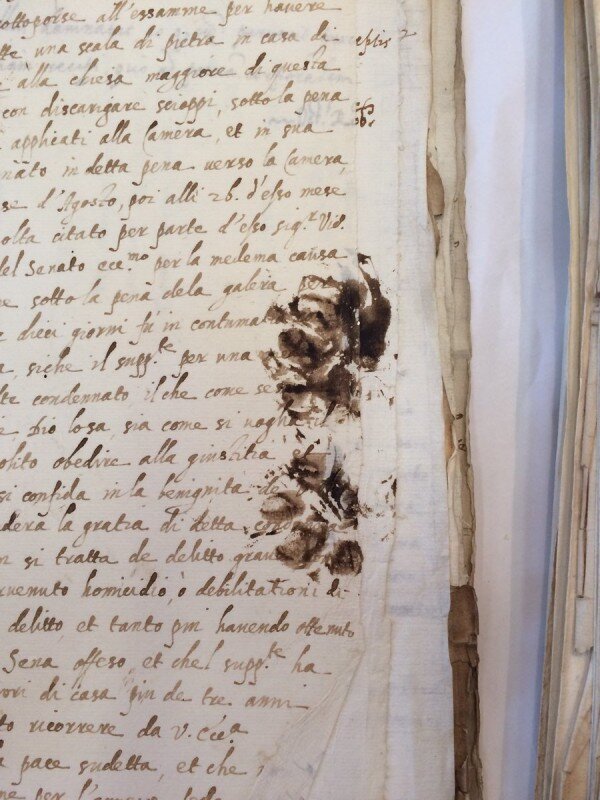 sottoporse all'essamme per havere
una scala di pietra in casa di
alla chiesa maggiore di questa
con discarigare scioppi, sotto la pena
applicati alla Camera, et in sua
nato in detta pena verso la Camera,
se d'Agosto, poi alli 26. d'esso mese
olta citato per parte d'esso sig.r Vic.
del Senato ecc.mo per la medema causa
sotto la pena dela galera per
dieci giorni fù in contuma
siche il supp.te per una
condennato il che come se
Dio lo sa, sia come si voglia
obedire alla giustitia et
si confida in la benignità de
la gratia di detta
si tratta de delitto grave
homicidio, ò debilitationi di
delitto, et tanto piu havendo ottenuto
Sena offeso, et chel supp.te ha
di casa piu de tre anni
ricorrere da V. Ecc.a
pace sudetta, et che
per